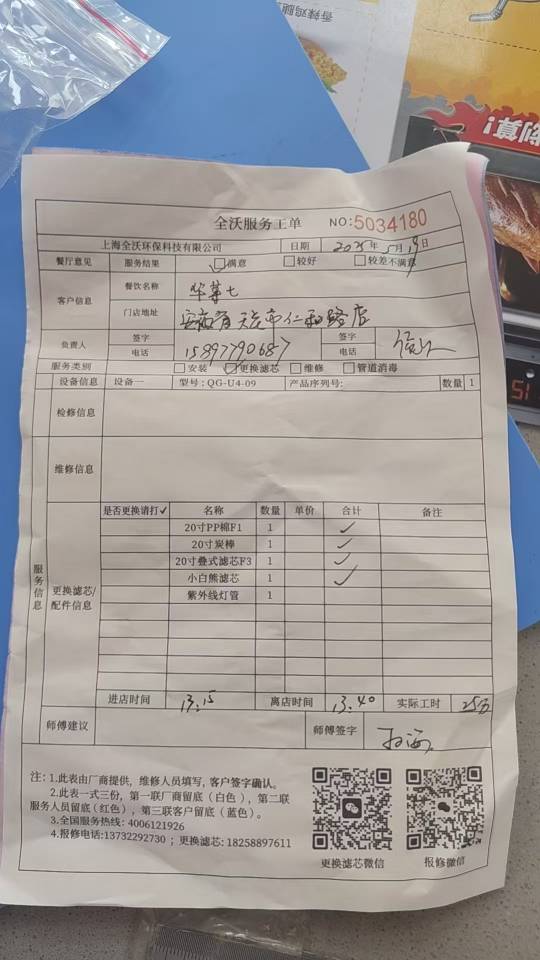 香辣鸡腿
划算！
51
全沃服务工单 NO:5034180
上海全沃环保科技有限公司 日期 2025年5月19日
餐厅意见 服务结果 满意 较好 较差不满意
客户信息 餐饮名称 华莱士
门店地址 安徽省天长市仁和路店
负责人 签字 签字
电话 15897790687 电话
服务类别 安装 更换滤芯 维修 管道消毒
设备信息 设备一 型号:QG-U4-09 产品序列号: 数量 1
检修信息
维修信息
服务信息
更换滤芯/配件信息
是否更换请打✓ 名称 数量 单价 合计 备注
20寸PP棉F1 1 ✓
20寸炭棒 1 ✓
20寸叠式滤芯F3 1 ✓
小白熊滤芯 1 ✓
紫外线灯管 1
进店时间 13:15 离店时间 13:40 实际工时 25分
师傅建议 师傅签字
注: 1.此表由厂商提供，维修人员填写，客户签字确认。
2.此表一式三份，第一联厂商留底（白色），第二联
服务人员留底（红色），第三联客户留底（蓝色）。
3.全国服务热线: 4006121926
4.报修电话:13732292730；更换滤芯: 18258897611
更换滤芯微信 报修微信